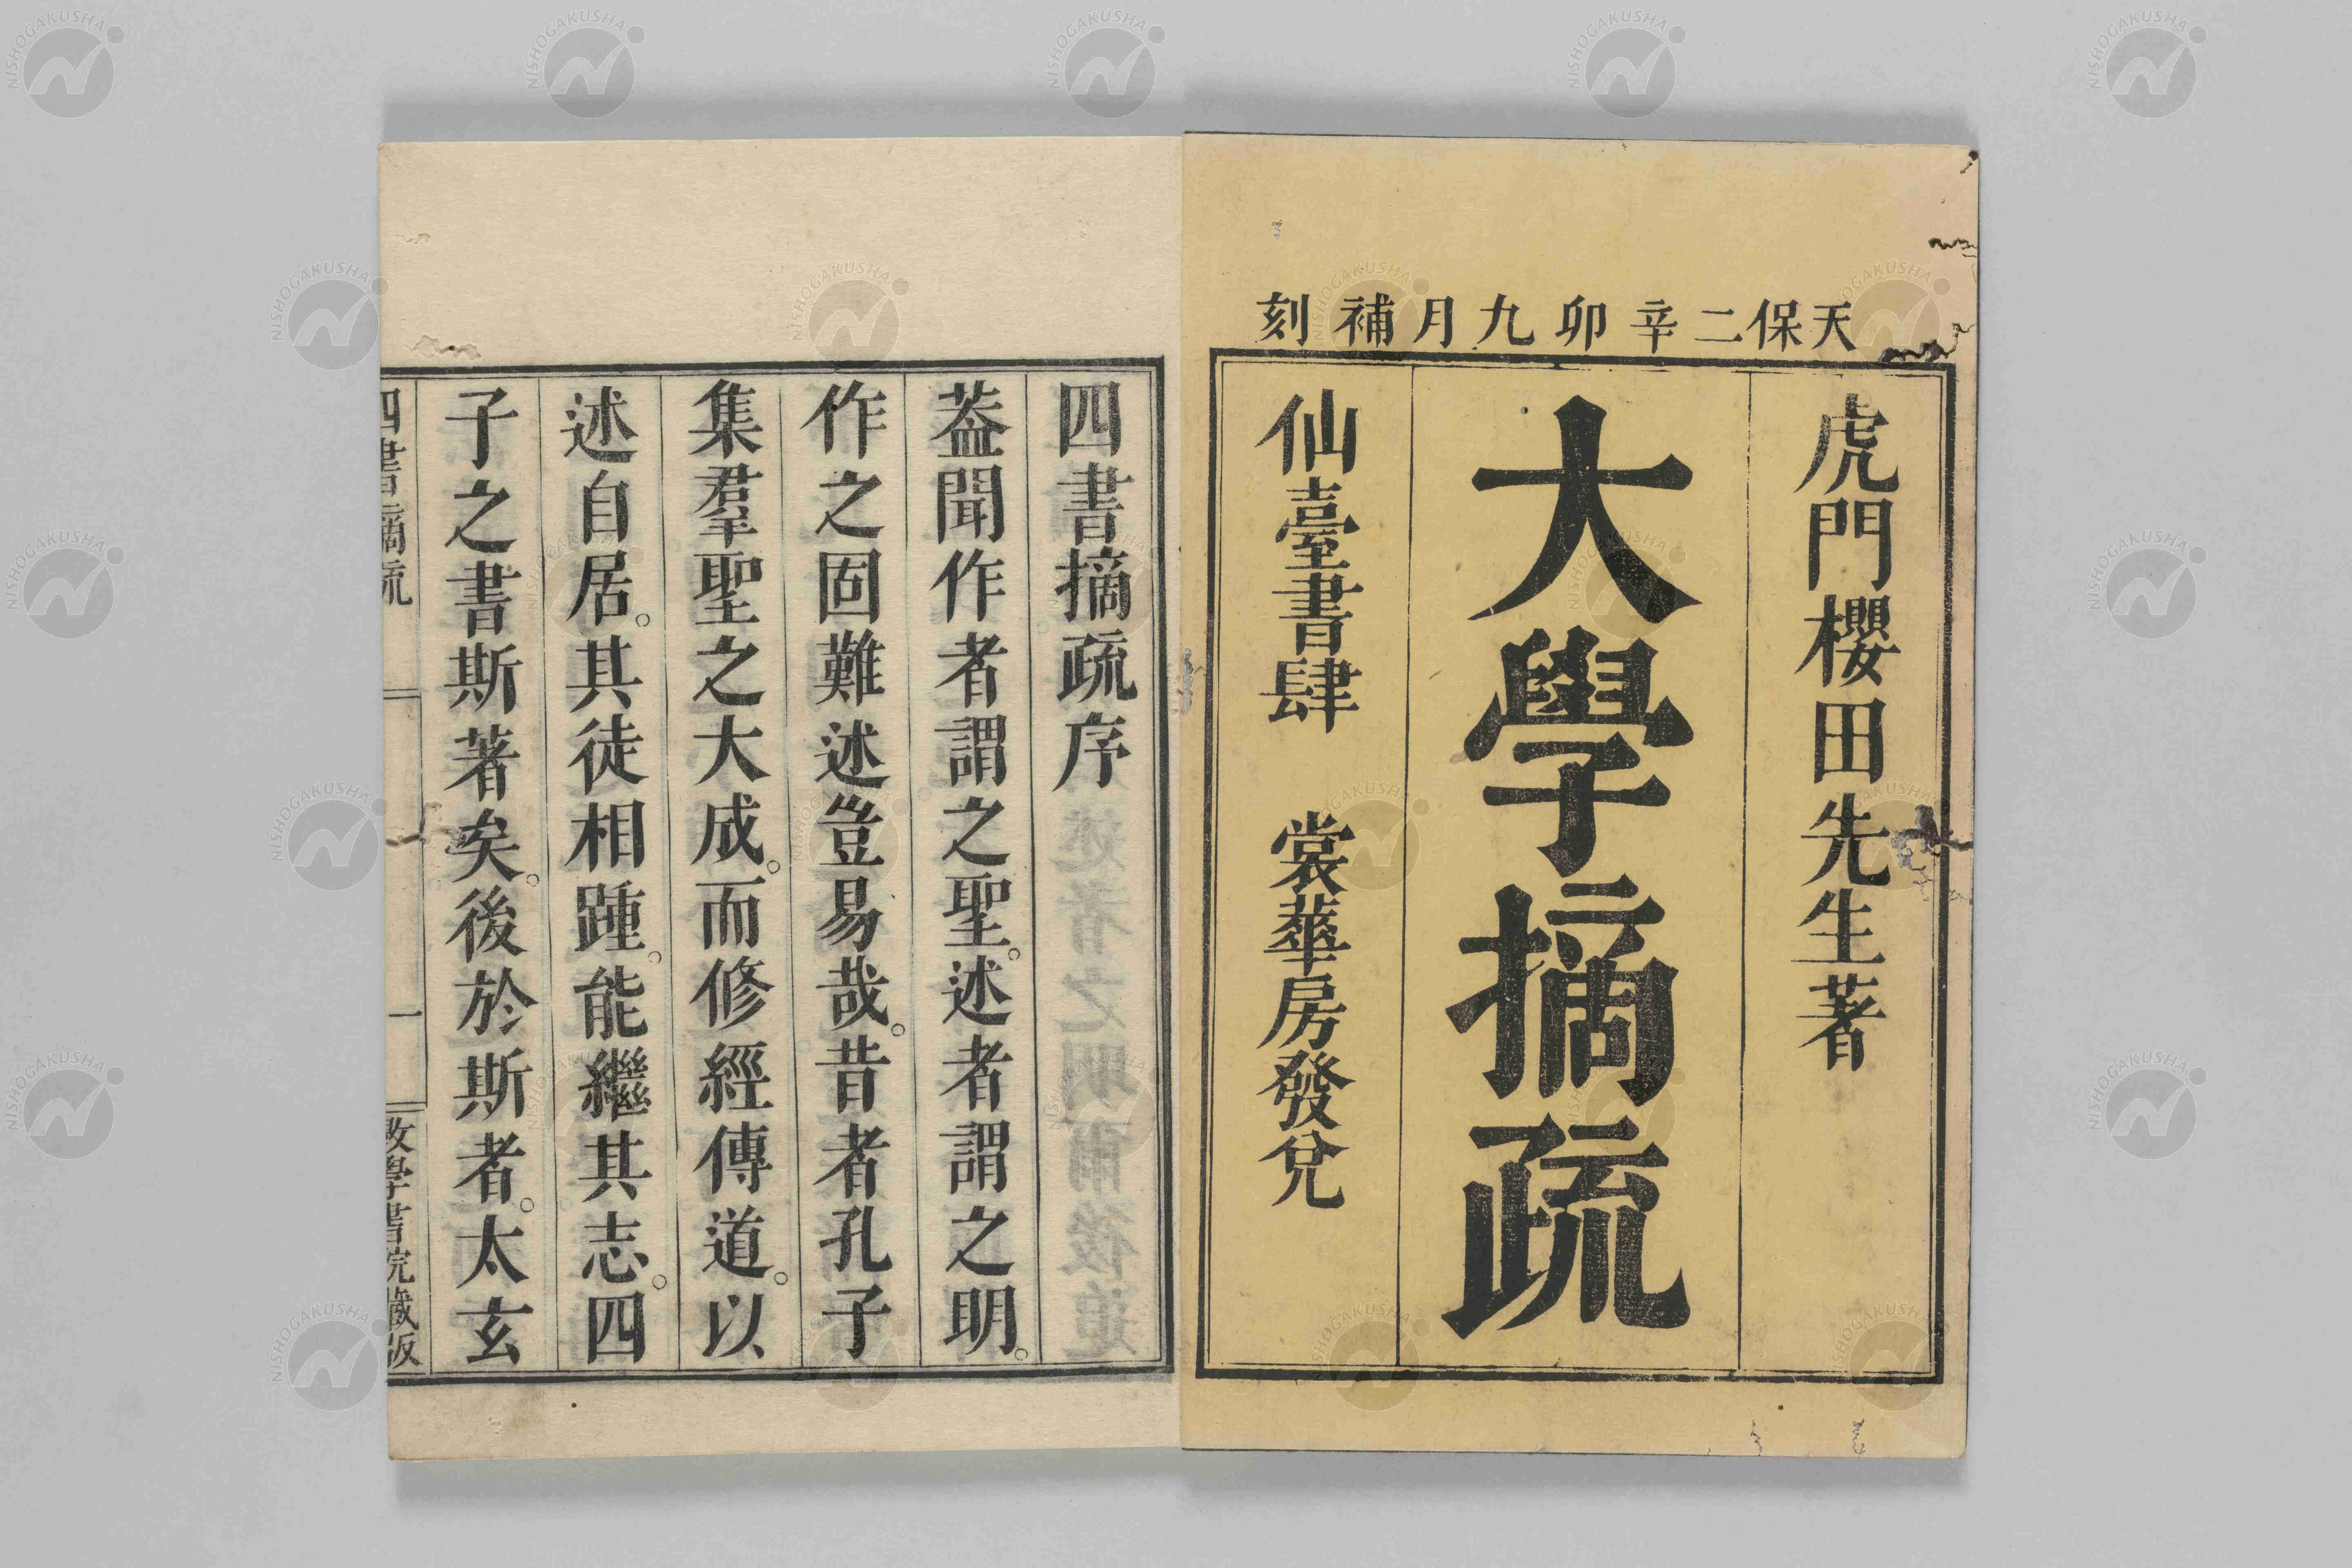 天保二辛卯九月補刻
虎門櫻田先生著
大學摘疏
仙臺書肆 裳華房發兌
四書摘疏序
葢聞作者謂之聖。述者謂之明。
作之固難述豈易哉。昔者孔子
集羣聖之大成。而修經傳道。以
述自居。其徒相踵。能繼其志。四
子之書斯著矣。後於斯者。太玄
四書摘疏 一 敬學書院藏版
NISHOGAKUSHA